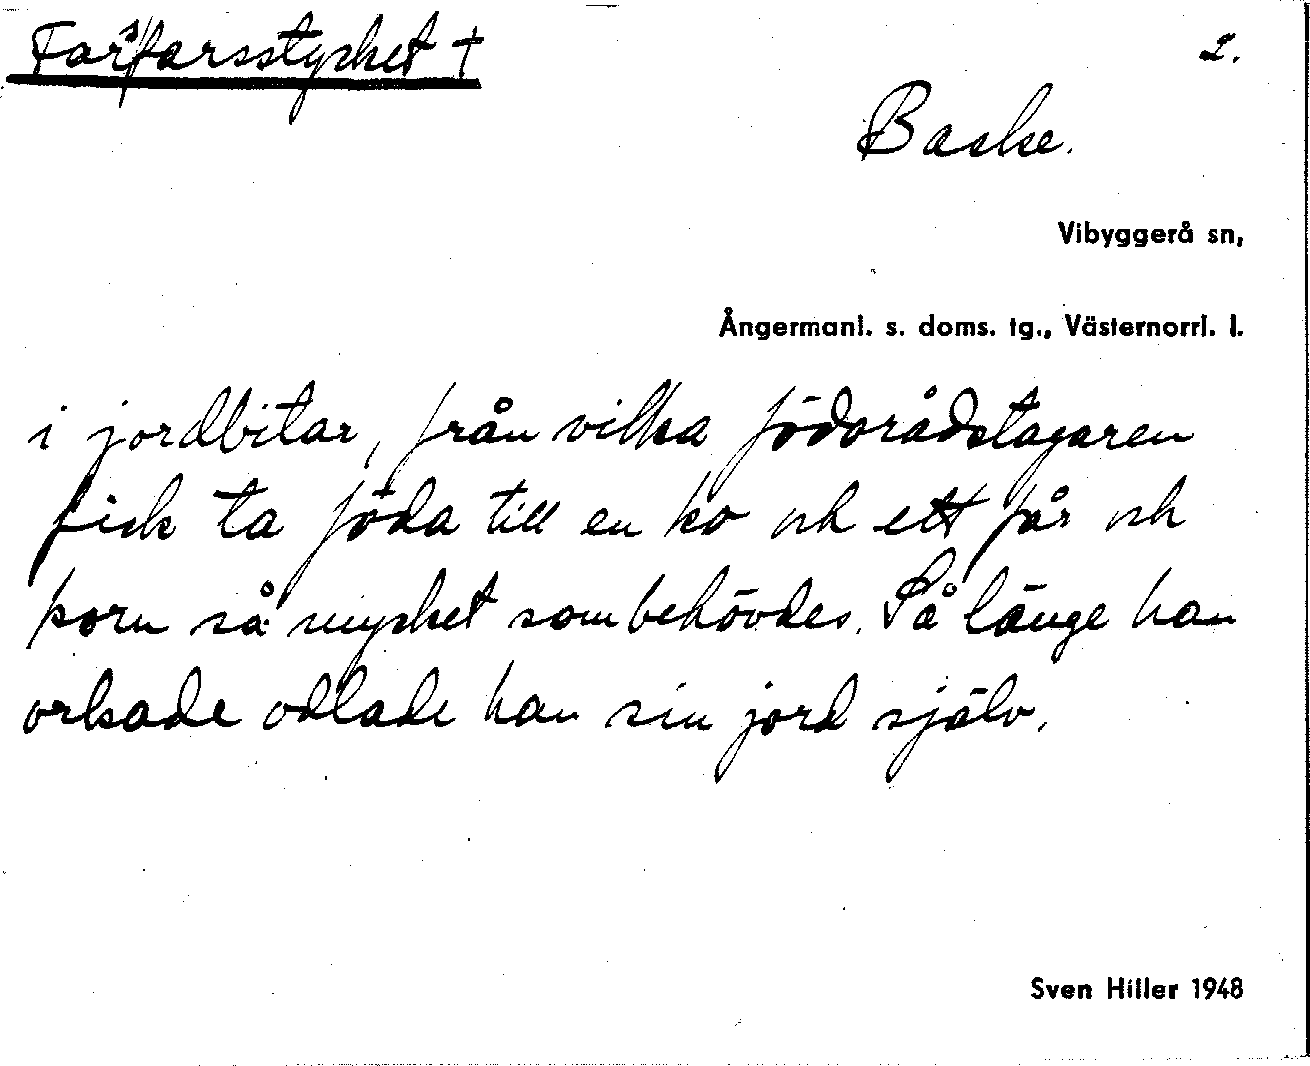 Farsfarsstycket †
2.
Baske.
Vibyggerå sn,
Ångermanl. s. doms. tg., Västernorrl. l.
i jordbitar, från vilka födorådstagaren
fick ta föda till en ko och ett får och
korn så mycket som behövdes. Så länge han
orkade odlade han sin jord själv.
Sven Hiller 1948